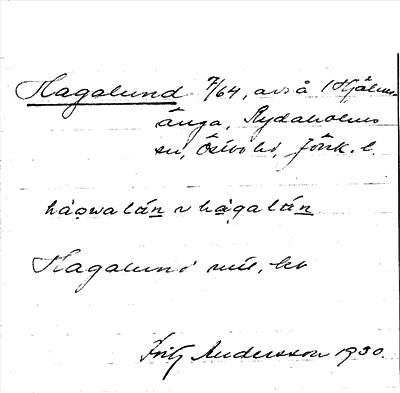 Hagalund 7/64, avs å 1 Hjälm-
ånga, Rydaholms
sn, Östbo hd, Jönk. l.
hágwalán ~ hágalán
Hagalund
Fritz Andersson 1930.